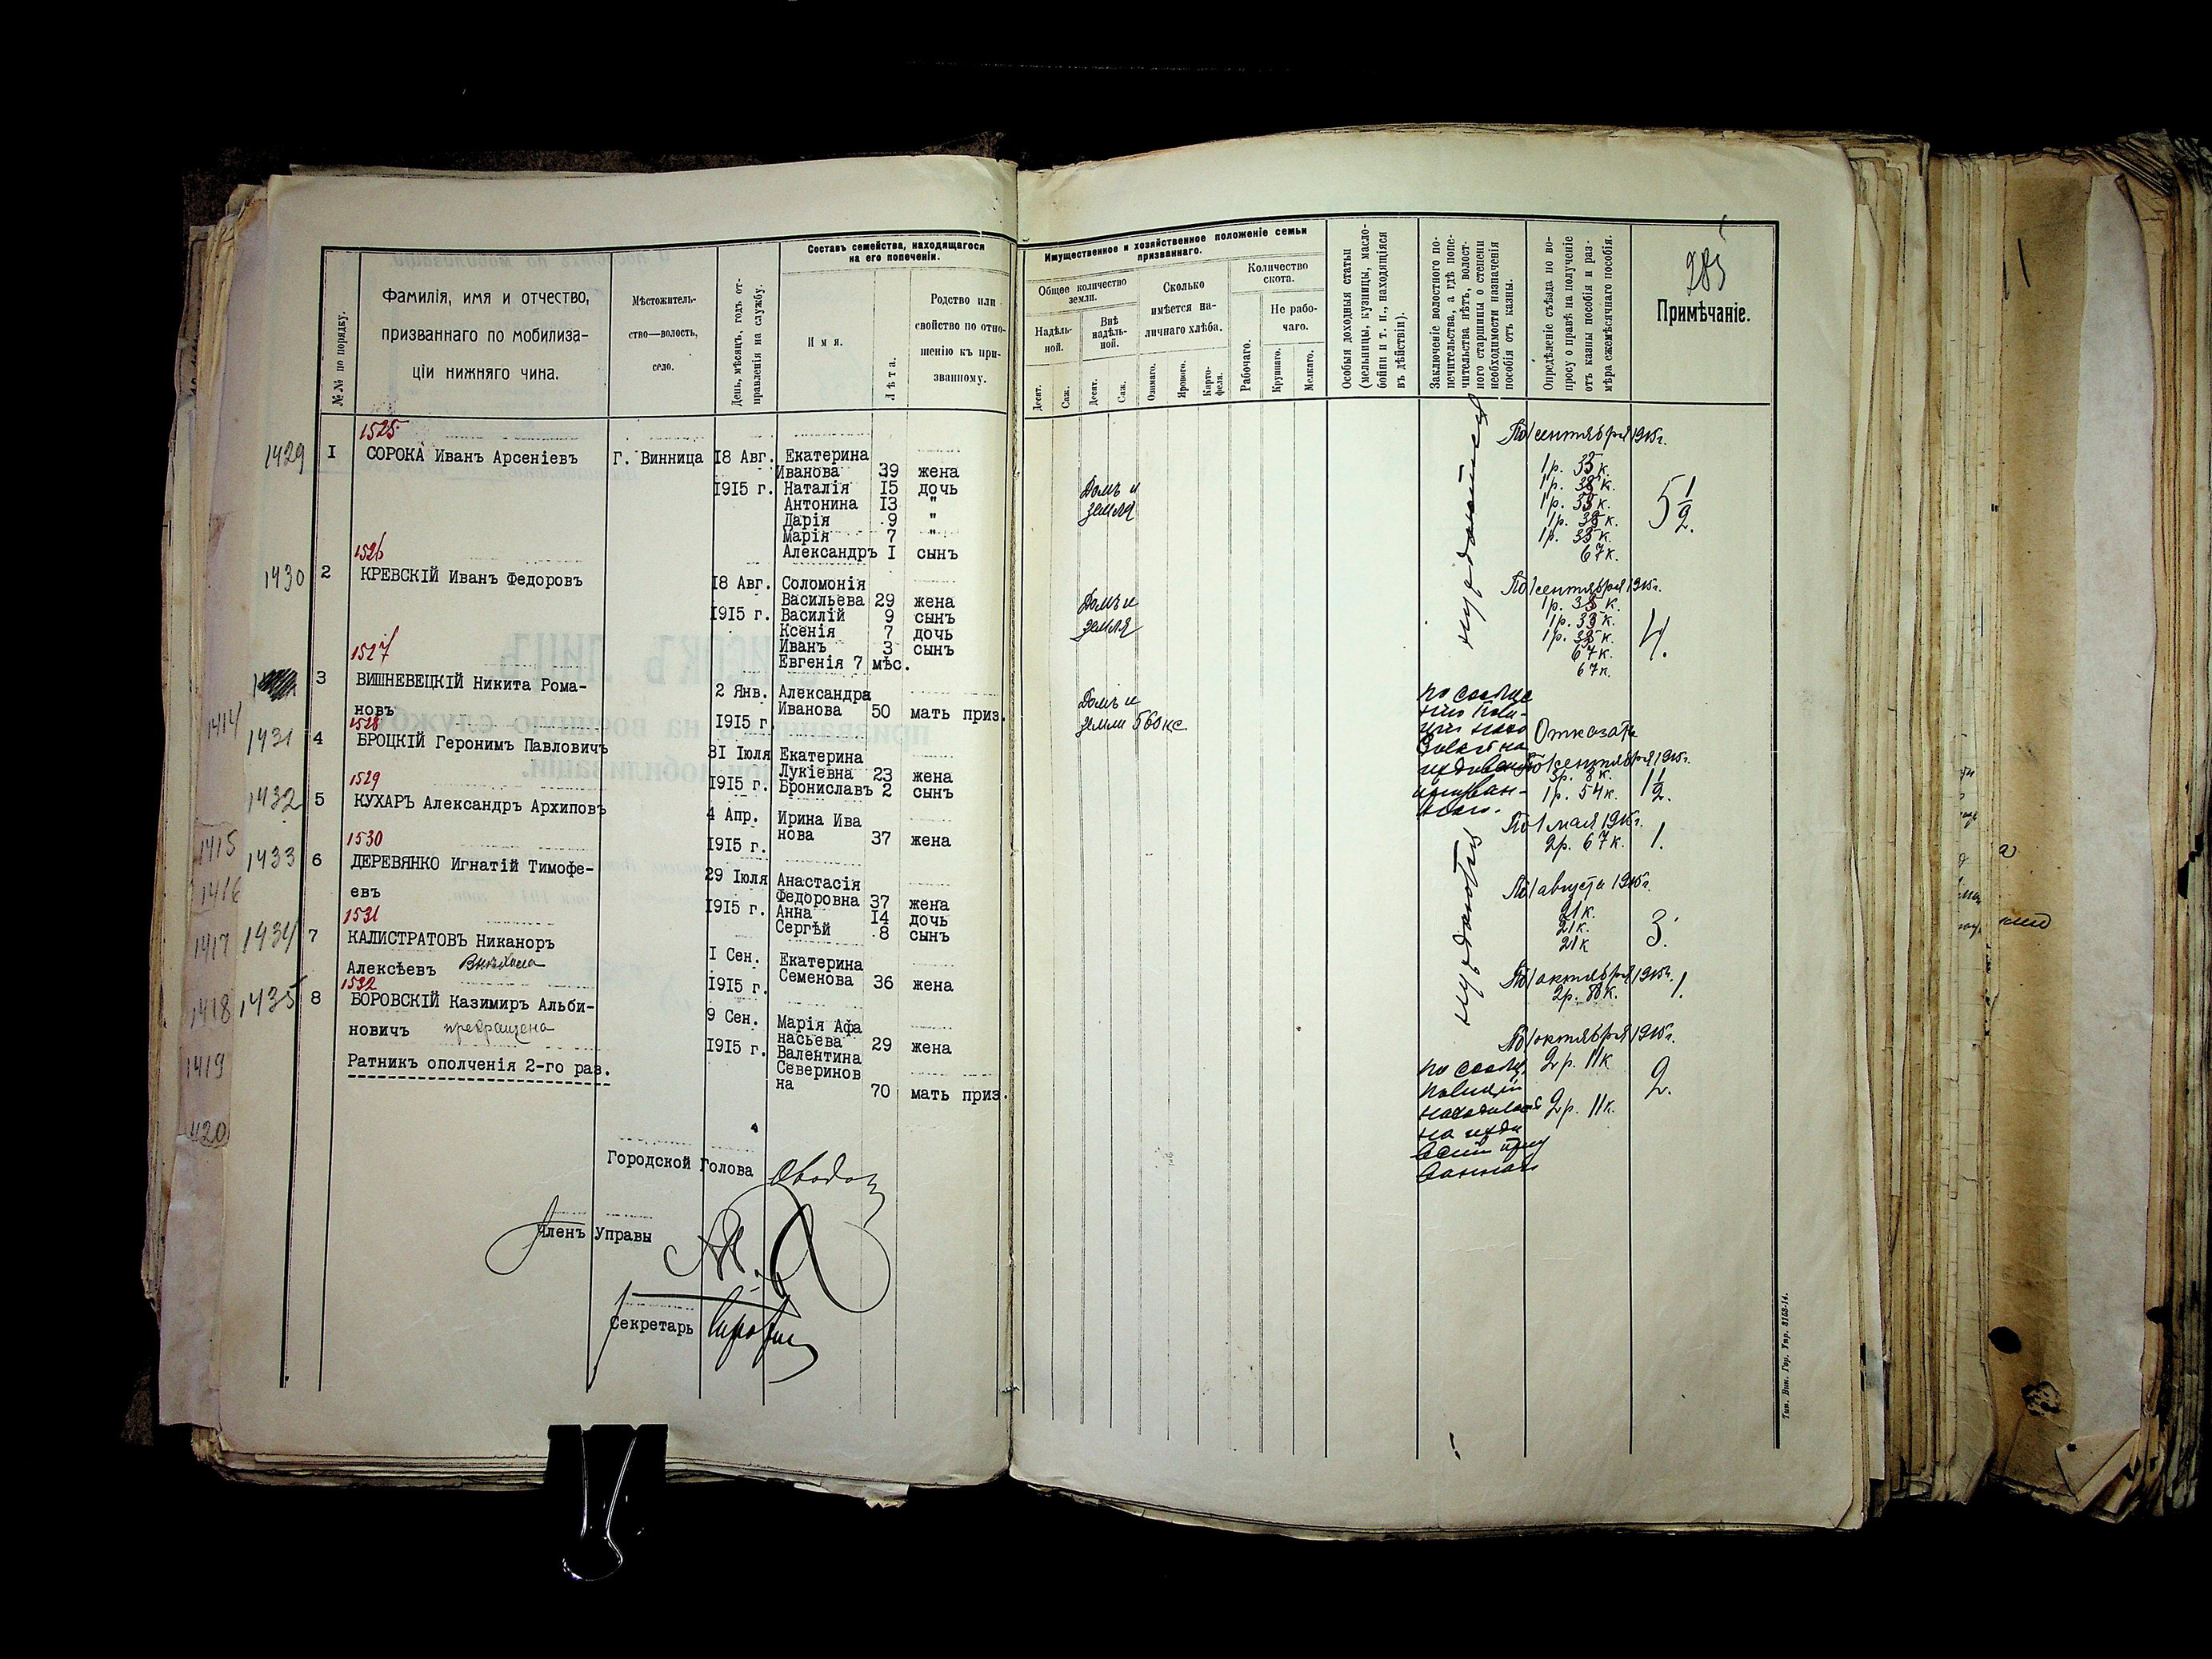 №№ по порядку.
Фамилія, имя и отчество,
призваннаго по мобилиза-
ціи нижняго чина.
Мѣстожитель-
ство—волость,
село.
День, мѣсяцъ, годъ от-
правленія на службу.
Составъ семейства, находящагося
на его попеченіи.
Имя.
Лѣта.
Родство или
свойство по отно-
шенію къ при-
званному.
1525
1429 I СОРОКА Иванъ Арсеніевъ Г. Винница 18 Авг. Екатерина
Иванова 39 жена
1915 г. Наталія 15 дочь
Антонина 13 "
Дарія 9 "
Марія 7 "
Александръ I сынъ
1526
1430 2 КРЕВСКІЙ Иванъ Федоровъ 18 Авг. Соломонія
Васильева 29 жена
1915 г. Василій 9 сынъ
Ксенія 7 дочь
Иванъ 3 сынъ
Евгенія 7 мѣс.
1527
3 ВИШНЕВЕЦКІЙ Никита Рома-
новъ
2 Янв. Александра
Иванова 50 мать приз.
1915 г.
1414
1528
1431 4 БРОЦКІЙ Геронимъ Павловичъ
31 Іюля Екатерина
Лукіевна 23 жена
1915 г. Брониславъ 2 сынъ
1529
1432 5 КУХАРЪ Александръ Архиповъ
4 Апр. Ирина Ива
нова 37 жена
1915 г.
1415
1530
1433 6 ДЕРЕВЯНКО Игнатій Тимофе-
евъ
1416
29 Іюля Анастасія
Федоровна 37 жена
1915 г. Анна 14 дочь
Сергѣй 8 сынъ
1531
1417 1434 7 КАЛИСТРАТОВЪ Никаноръ
Алексѣевъ
I Сен. Екатерина
Семенова 36 жена
1915 г.
1532
1418 1435 8 БОРОВСКІЙ Казимиръ Альби-
новичъ прекращено
9 Сен. Марія Афа
насьева 29 жена
1915 г. Валентина
Северинов
на 70 мать приз.
1419
Ратникъ ополченія 2-го раз.
1420
Городской Голова
Членъ Управы
Секретарь
Имущественное и хозяйственное положеніе семьи
призваннаго.
Общее количество
земли.
Надѣль-
ной.
Внѣ
надѣль-
ной.
Десят.
Саж.
Десят.
Саж.
Сколько
имѣется на-
личнаго хлѣба.
Озимаго.
Яроваго.
Карто-
феля.
Количество
скота.
Рабочаго.
Не рабо-
чаго.
Крупнаго.
Мелкаго.
Особыя доходныя статьи
(мельницы, кузницы, масло-
бойни и т. п., находящіяся
въ дѣйствіи).
Заключеніе волостного по-
печительства, а гдѣ попе-
чительства нѣтъ, волост-
ного старшины о степени
необходимости назначенія
пособія отъ казны.
Опредѣленіе съѣзда по во-
просу о правѣ на полученіе
отъ казны пособія и раз-
мѣра ежемѣсячнаго пособія.
285
Примѣчаніе.
Домъ и
земля
нуждается
1 сентября 1915 г.
1р. 35 к.
1р. 35 к.
1р. 35 к.
1р. 35 к.
1р. 35 к.
67 к.
5 1/2.
Домъ и
земля
1 сентября 1915 г.
1р. 35 к.
1р. 35 к.
1р. 35 к.
67 к.
67 к.
4.
Домъ и
земли
Отказать
1 сентября 1915 г.
3р. 8 к.
1р. 54 к.
1 1/2.
1 мая 1915 г.
2р. 67 к.
1.
нуждаются
1 августа 1915 г.
21 к.
21 к.
21 к
3.
1 октября 1915 г.
1.
1 октября 1915 г.
2р. 11 к
2р. 11 к.
2.
Тип. Вин. Гор. Упр. 3153-14.